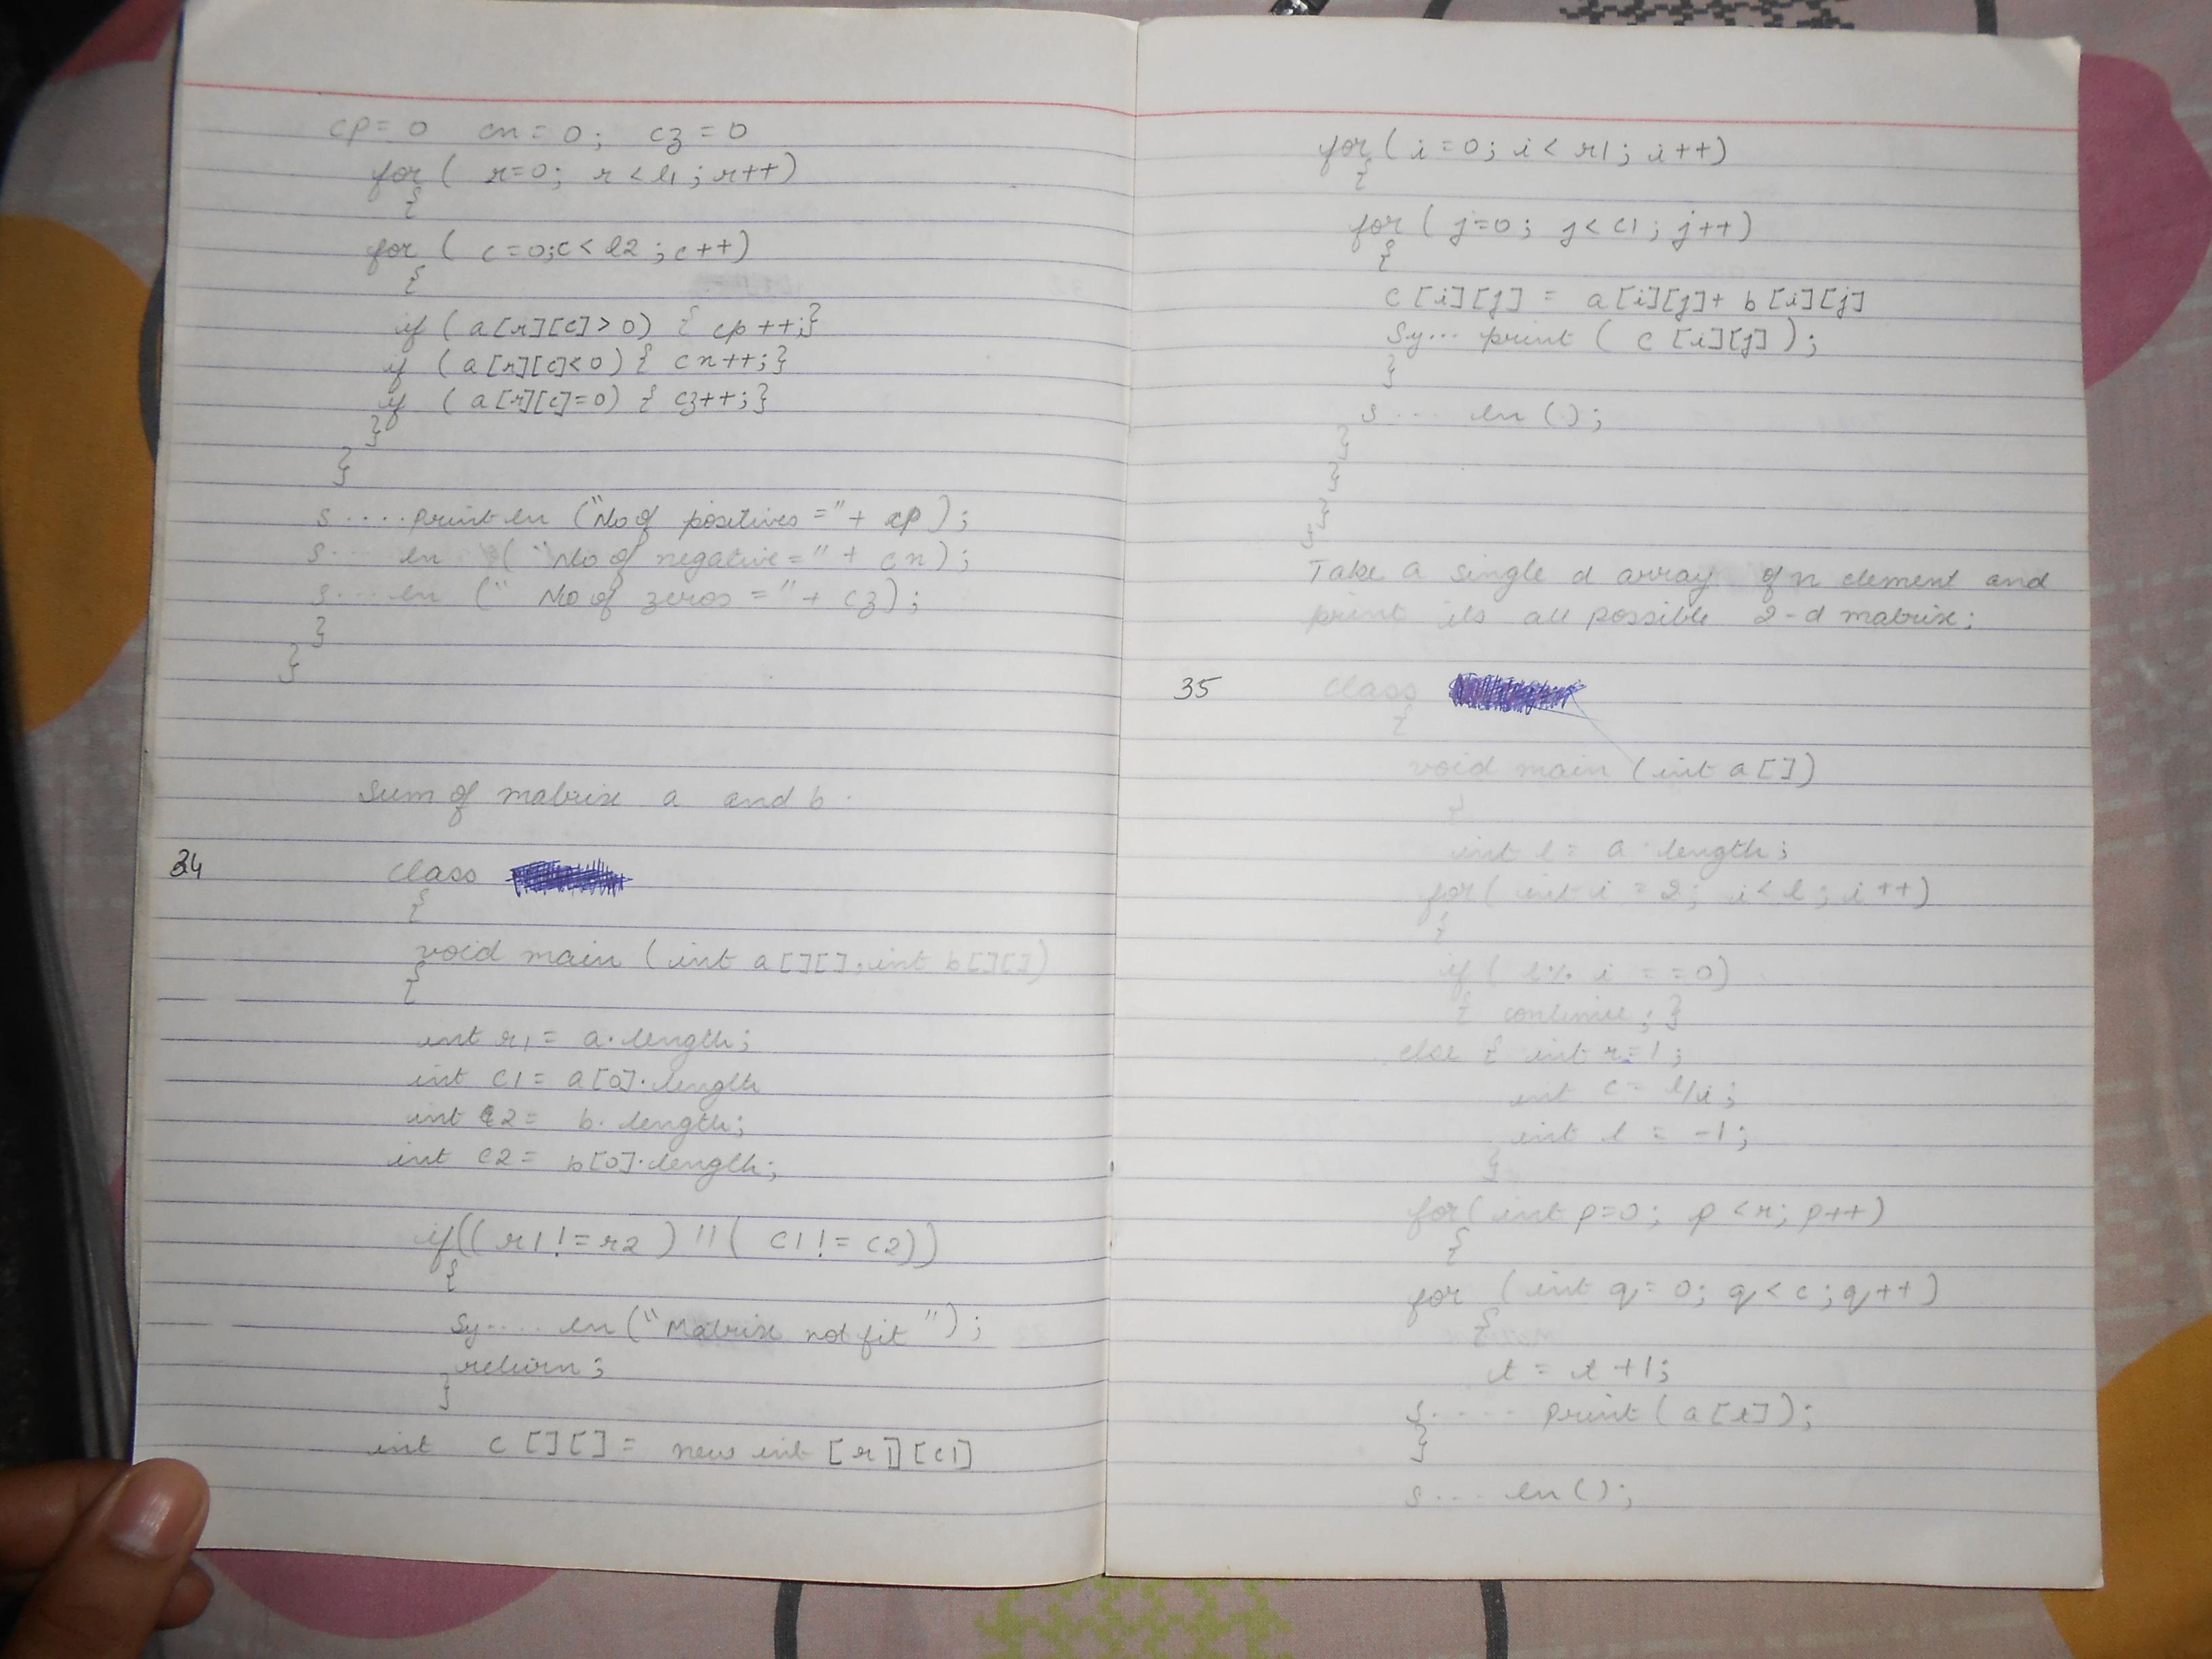 cp=0 cn=0; cz=0
for( r=0; r<l1; r++)
{
for ( c=0;c<l2;c++)
{
if(a[r][c]>0) { cp++;}
if (a[r][c]<0) { cn++;}
if (a[r][c]=0) { cz++;}
}
}
s.....println ("No of positives ="+ cp);
s..... ln ("No of negative=" + cn);
s.....ln (" No of zeros =" + cz);
}
}
Sum of matrix a and b.
34 class
{
void main (int a[][];int b[][])
{
int r1 = a.length;
int c1 = a[0].length
int r2 = b.length;
int c2 = b[0].length;
if((r1!=r2)||( c1!=c2))
{
Sy..... ln("Matrix not fit");
return;
}
int c[][] = new int [r1][c1]
for( i=0; i<r1; i++)
{
for( j=0; j<c1; j++)
{
c[i][j] = a[i][j]+ b[i][j]
Sy... print ( c[i][j]);
}
s .... ln ();
}
}
}
}
Take a single d array of n element and
print its all possible 2-d matrix;
35 class
{
void main (int a[])
}
int l = a.length;
for( int i = 2; i<l; i++)
{
if( l% i ==0)
{ continue; }
else { int r=1;
int c= l/i;
int t = -1;
}
for(int p=0; p<r; p++)
{
for (int q=0; q<c; q++)
{
t = t+1;
s..... print(a[t]);
}
s... ln();